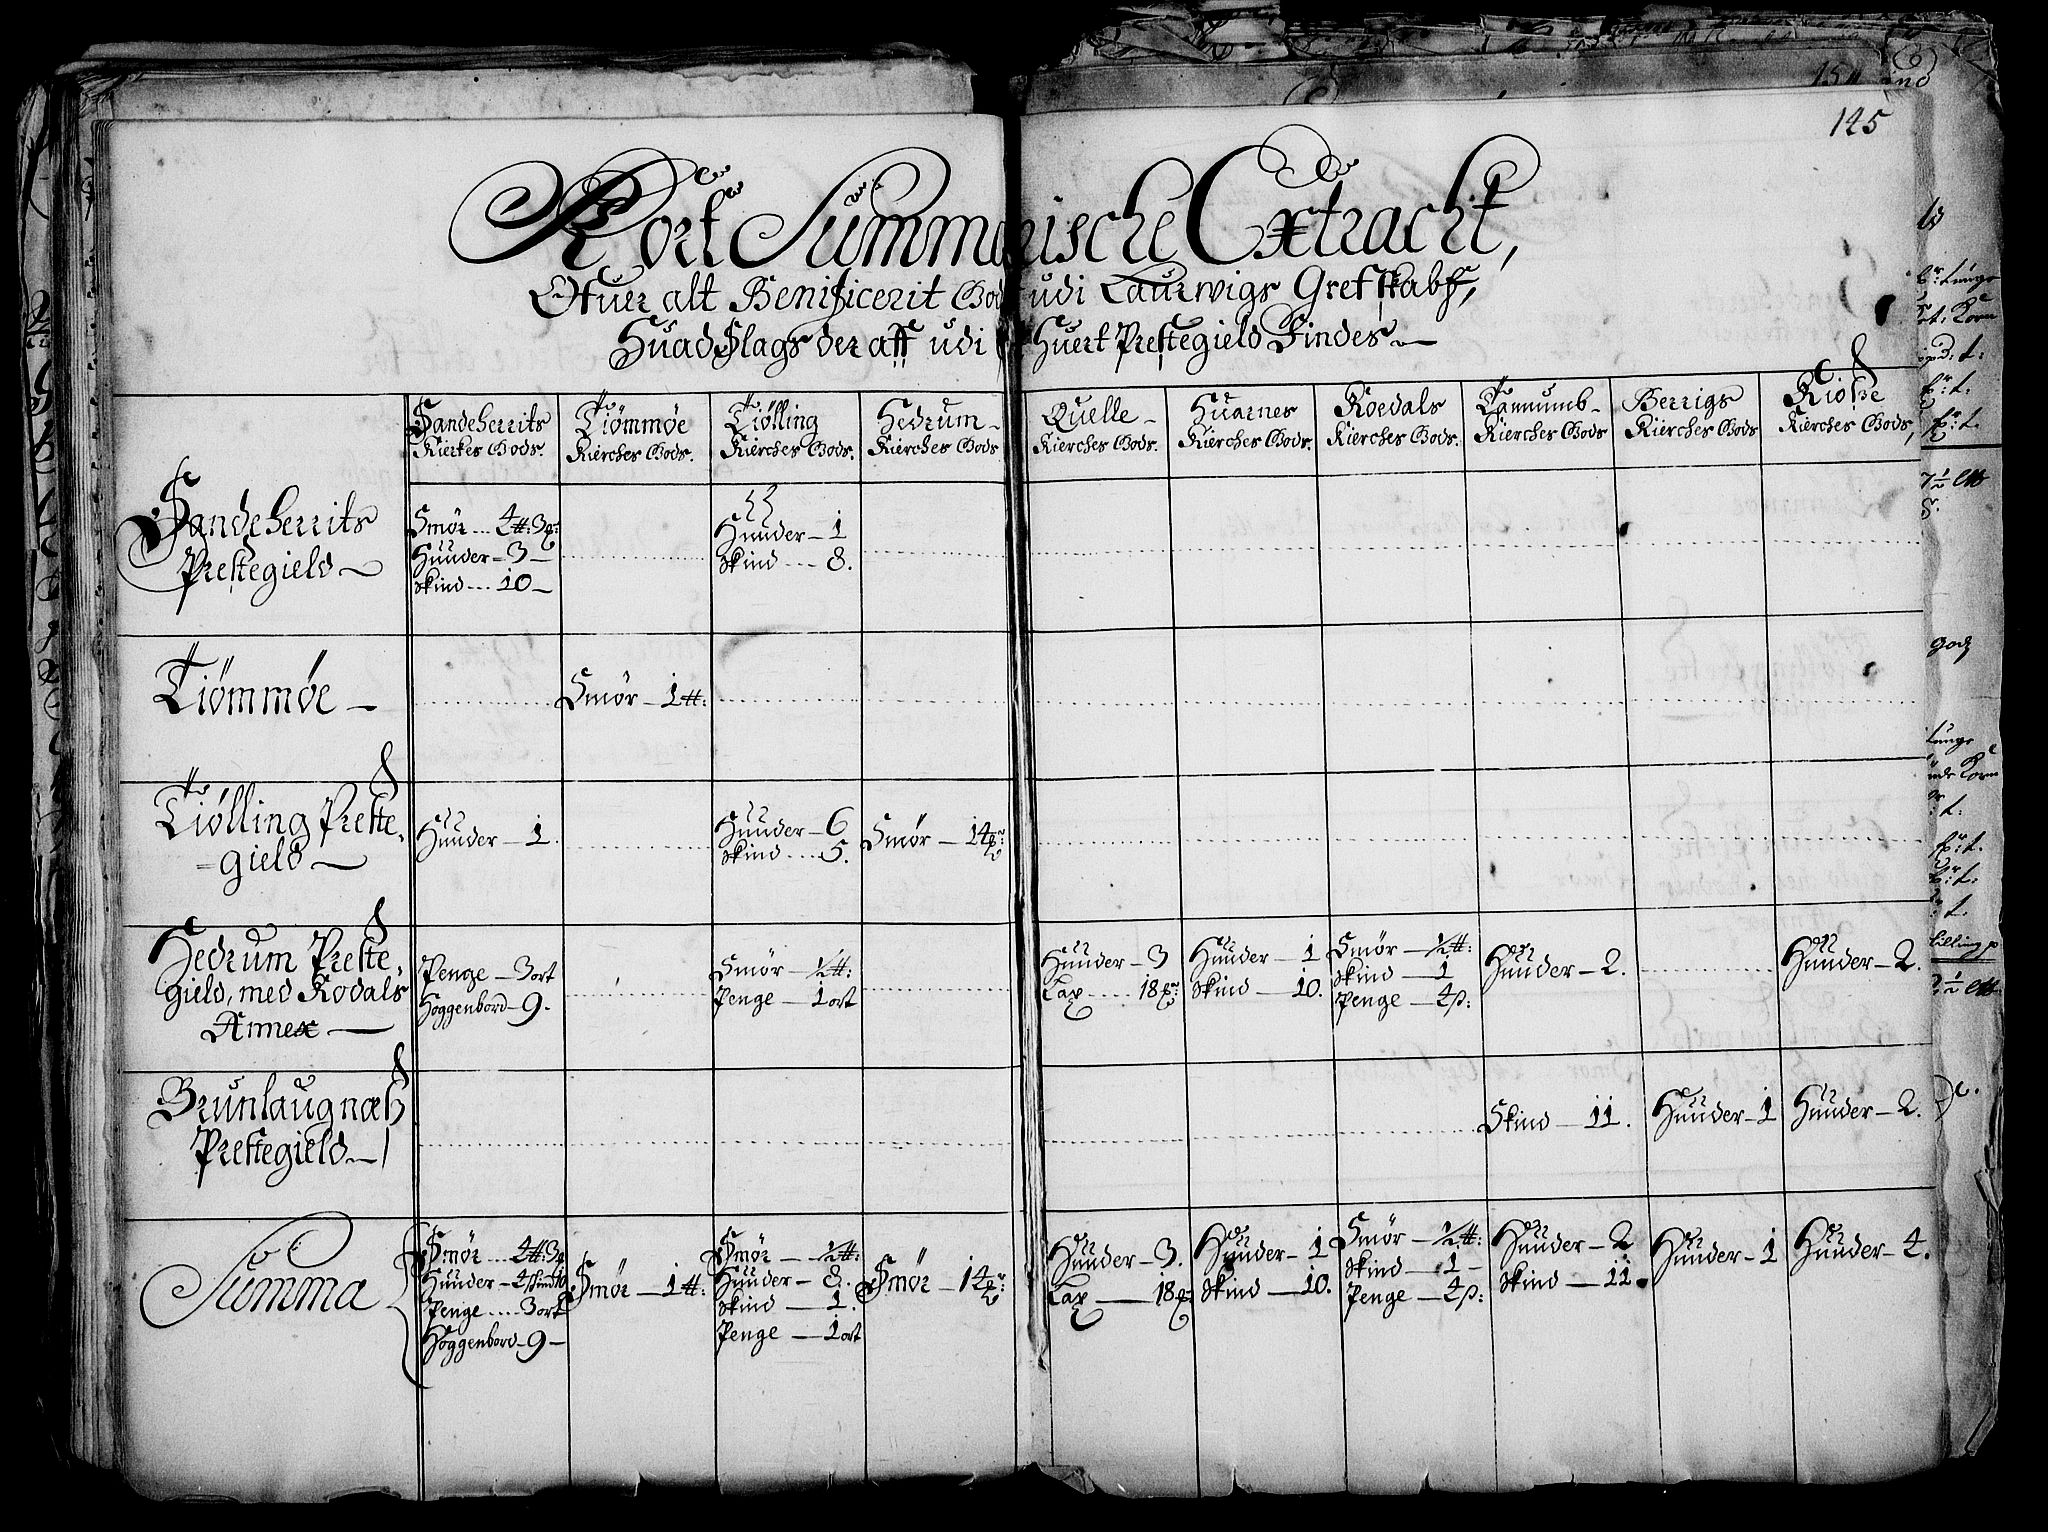 145
Kort Summarische Extracht,
Ofuer alt Benificerit Gods udi Laurvigs Grefskabs,
Huad Slags der aff udi Huert Prestegield Findes
Sandeherrits Kirkes Gods.
Tiømmøe Kierches Gods.
Tiølling Kierches Gods.
Hedrum Kierches Gods
Quelle Kierches Gods.
Huarnes Kierches Gods.
Roedals Kierches Gods.
Tanumb Kierches Gods
Berrigs Kierches Gods
Kiose Kierches Gods,
Sandeherrits
Prestegield
Smør 4 tt: 3
Huuder 3
skind 10
Huuder 1
skind 8.
Tiømmøe
Smør 1 tt:
Tiølling Preste-
gield
Huuder 1
Huuder 6
skind 5.
Smør 14
Hedrum Preste
gield, med Kodals
Annex
Penge 3 ort
Hoggenbord 9.
Smør ½ tt:
Penge 1 ort
Huuder 3
Lax 18
Huuder 1
skind 10.
Smør ½ tt:
skind 1
Penge 4 s:
Huuder 2.
Huuder 2.
Brunlaugnæs
Prestegield
Skind 11.
Huuder 1
Huuder 2.
Summa
Smør 4 tt: 3
Huuder 4 skind 10
Penge 3 ort
Hoggenbord 9
Smør 1 tt:
Smør ½ tt:
Huuder 8.
skind 1.
Penge 1 ort
Smør 14
Huuder 3.
Lax 18
Huuder 1
skind 10.
Smør ½ tt:
skind 1
Penge 4 s:
Huuder 2
skind 11
Huuder 1
Huuder 4.